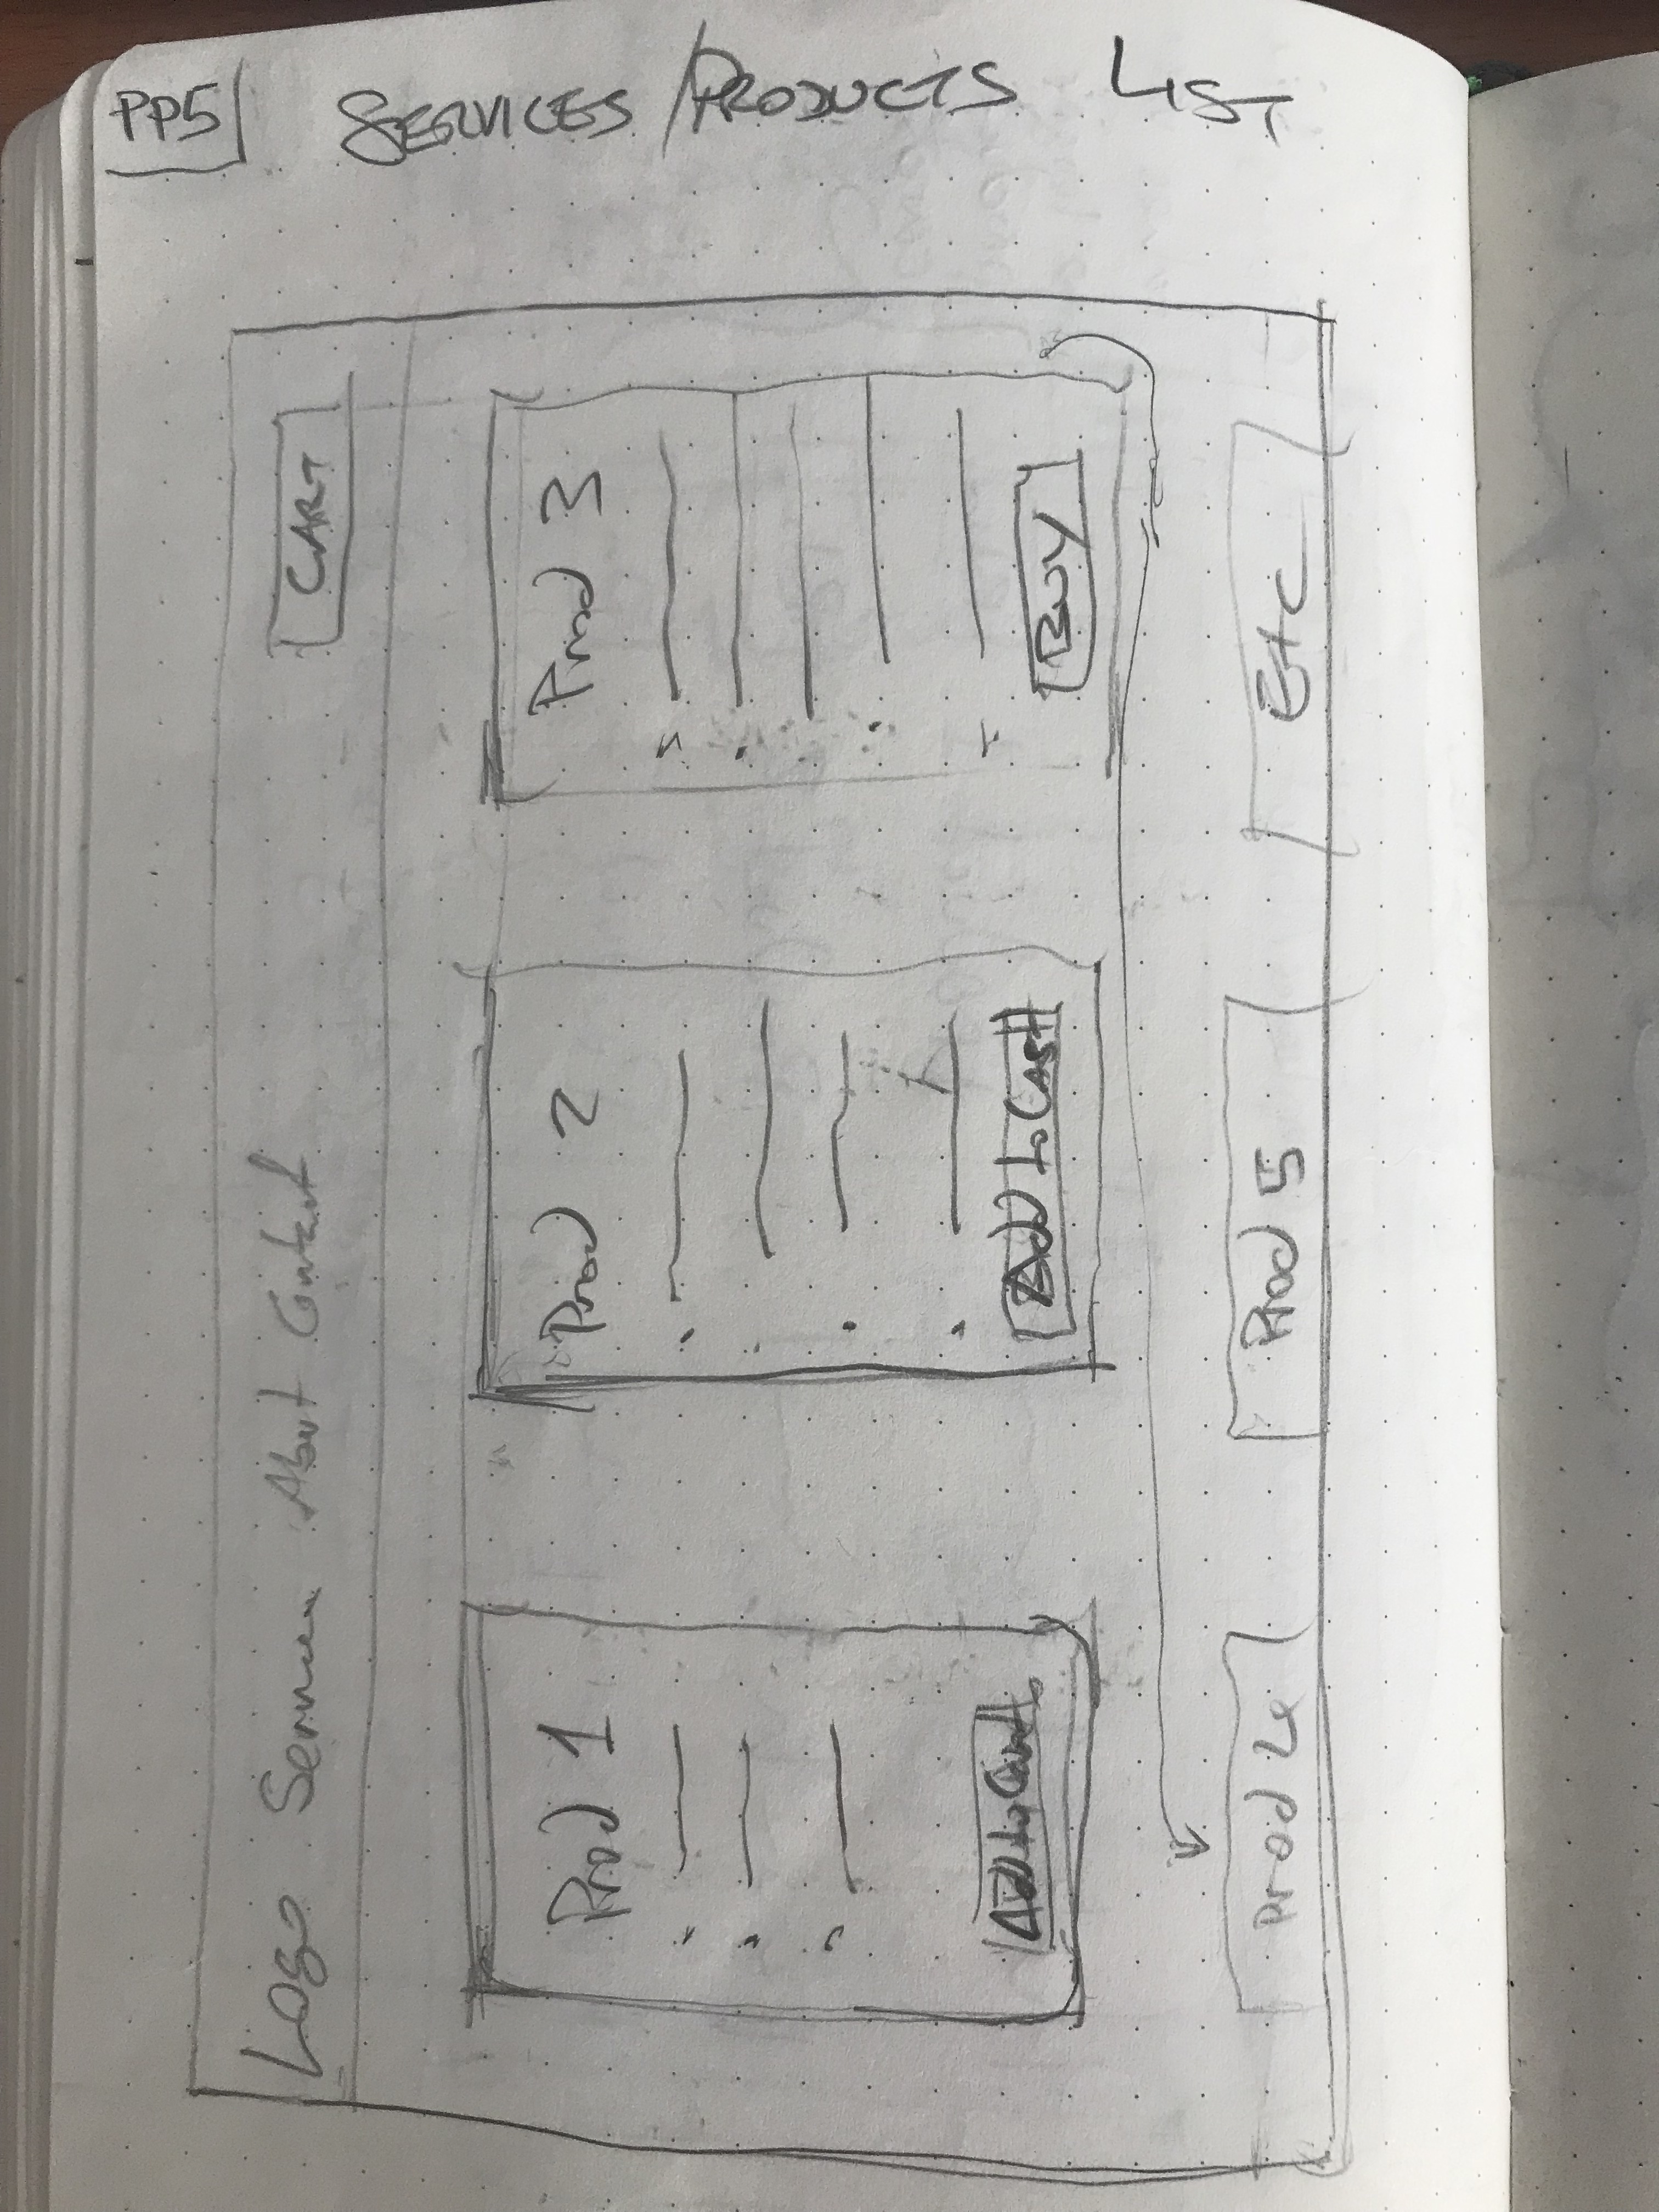 PP5 SERVICES/PRODUCTS LIST
Logo Services About Contact CART
Prod 1
Add to Cart
Prod 2
Add to Cart
Prod 3
Buy
Prod 4
Prod 5
Etc